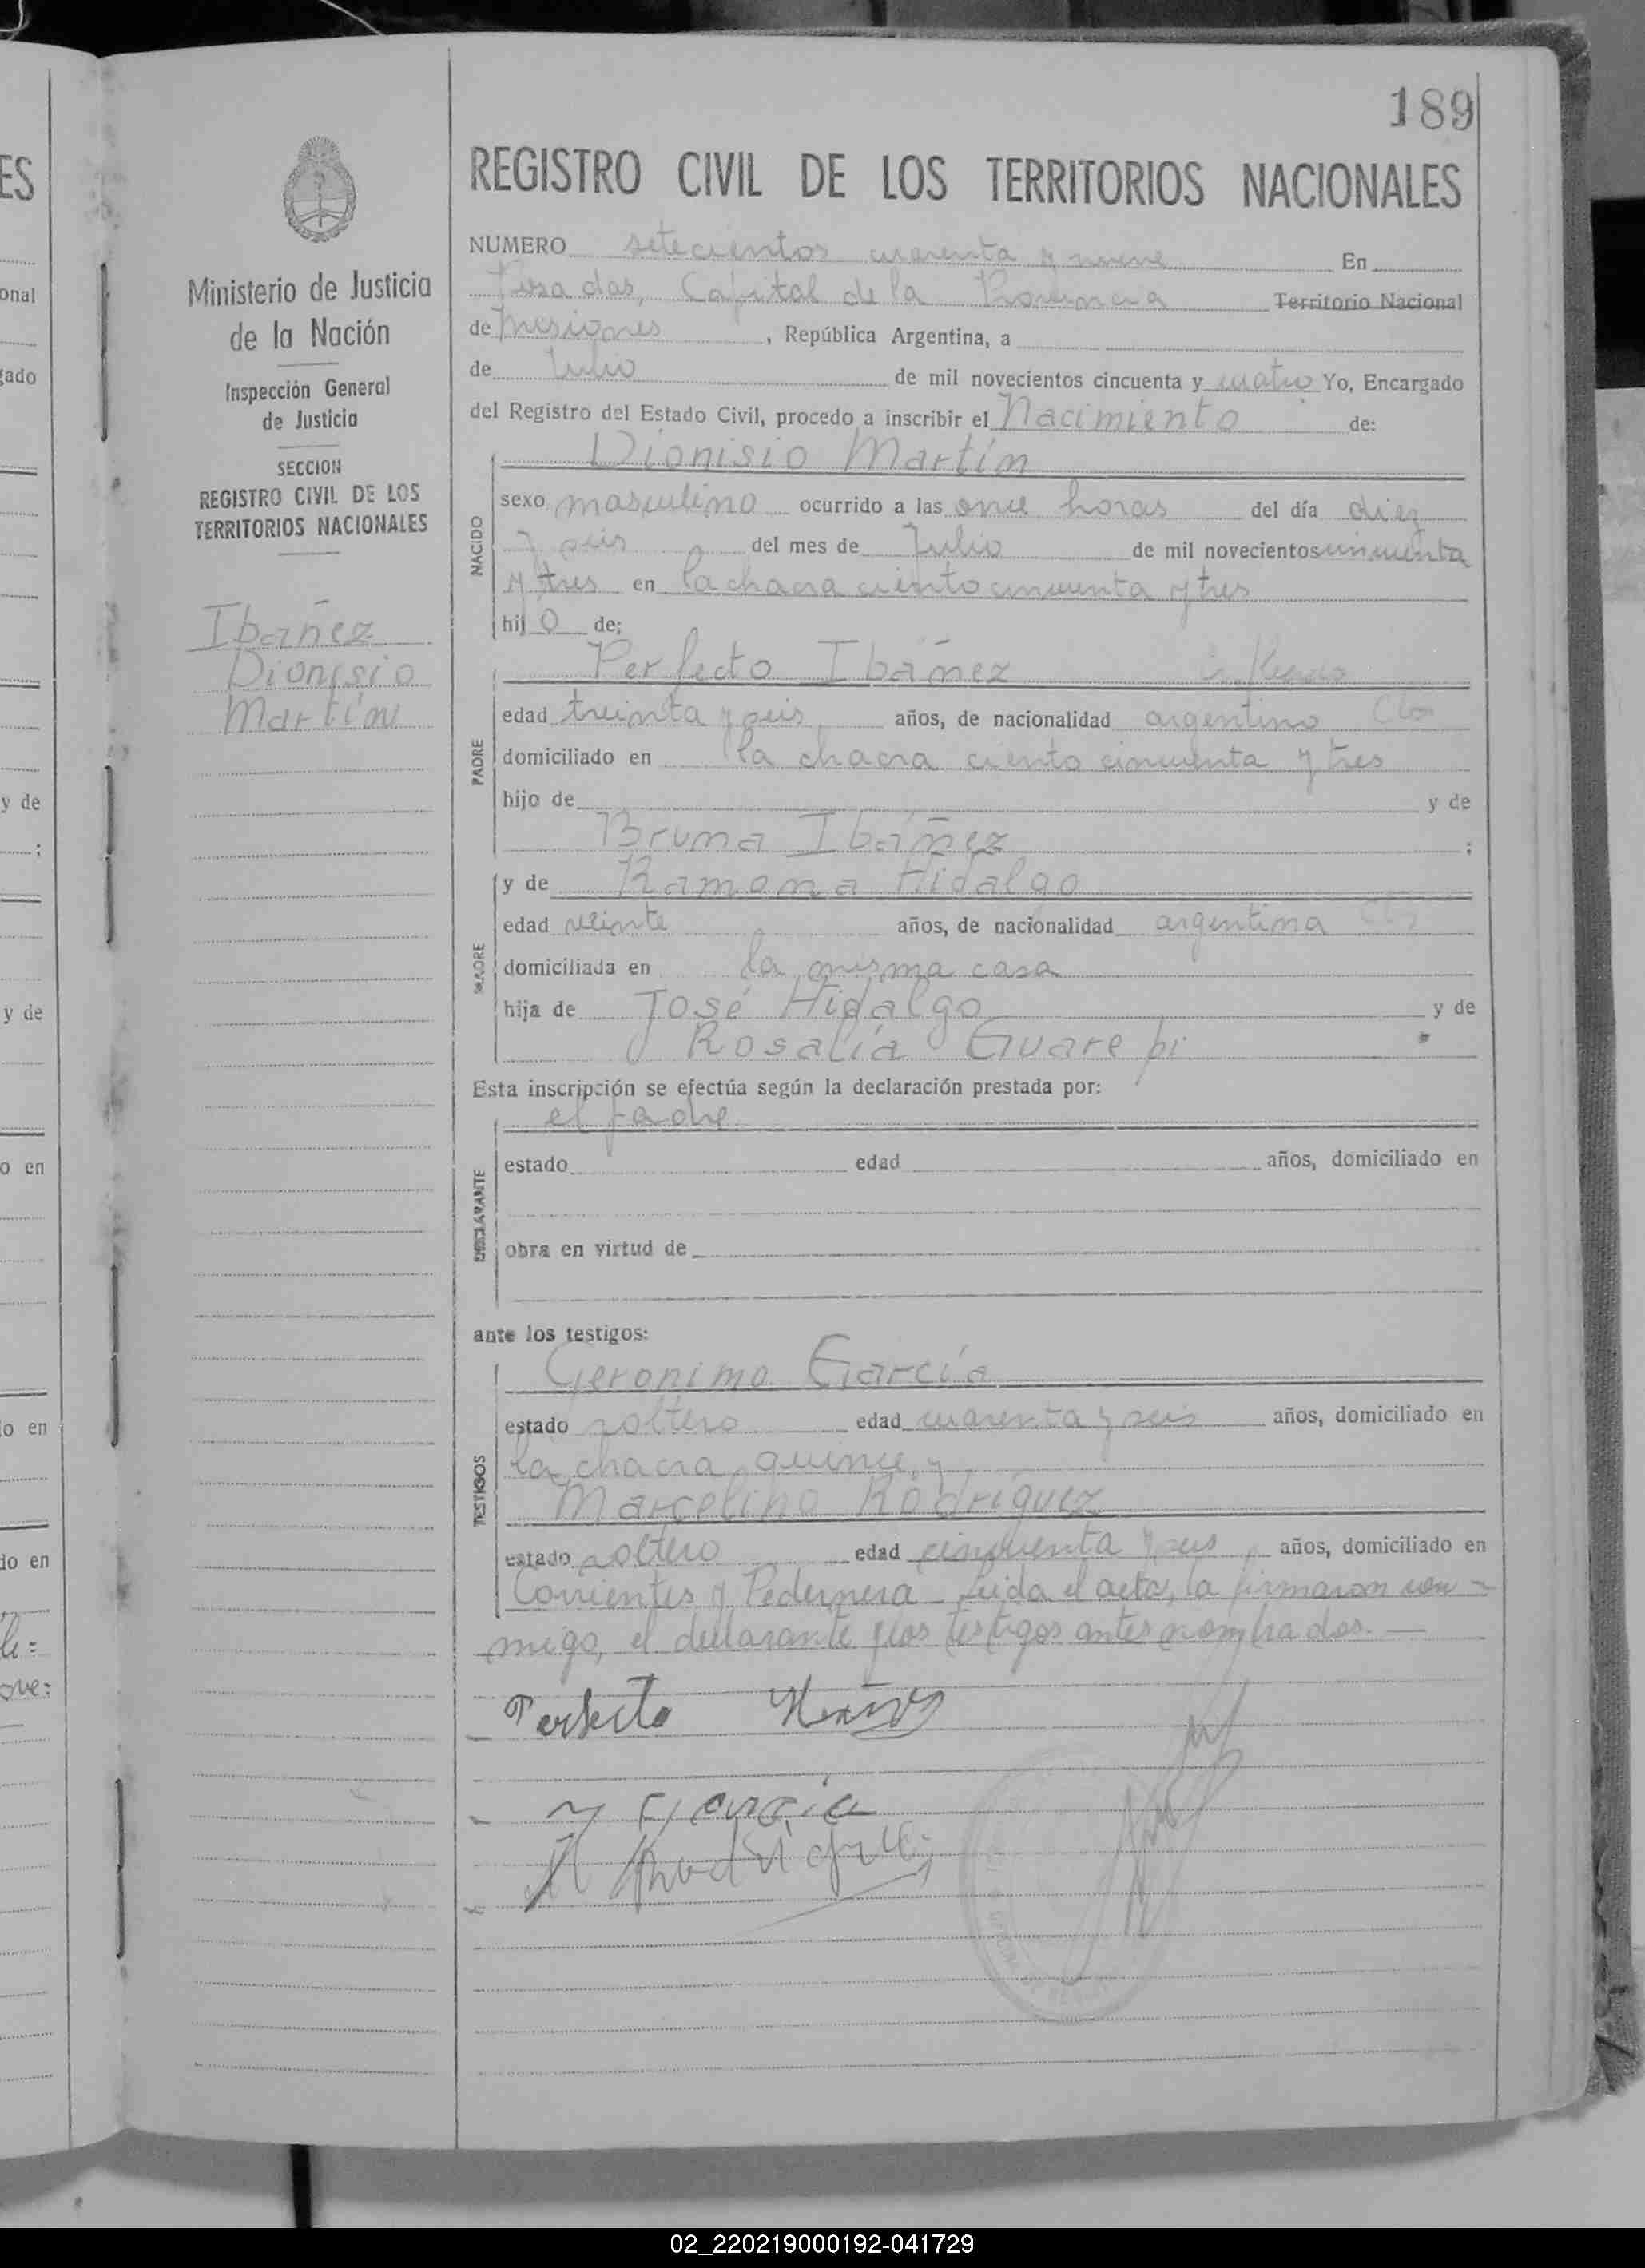 189
REGISTRO CIVIL DE LOS TERRITORIOS NACIONALES
Ministerio de Justicia
de la Nación
Inspección General
de Justicia
SECCION
REGISTRO CIVIL DE LOS
TERRITORIOS NACIONALES
Ibañez
Dionisio
Martín
NUMERO setecientos cuarenta y nueve En
Posadas, Capital de la Provincia Territorio Nacional
de Misiones, República Argentina, a
de Julio de mil novecientos cincuenta y cuatro Yo, Encargado
del Registro del Estado Civil, procedo a inscribir el Nacimiento de:
Dionisio Martín
NACIDO
sexo masculino ocurrido a las once horas del día diez
y seis del mes de Julio de mil novecientos cincuenta
y tres en la chacra ciento cincuenta y tres
hijo de;
Perfecto Ibáñez
PADRE
edad treinta y seis años, de nacionalidad argentino
domiciliado en la chacra ciento cincuenta y tres
hijo de y de
Bruna Ibáñez ;
y de Ramona Hidalgo
MADRE
edad veinte años, de nacionalidad argentina
domiciliada en la misma casa
hija de José Hidalgo y de
Rosalía Guarepi
Esta inscripción se efectúa según la declaración prestada por:
el padre
DECLARANTE
estado edad años, domiciliado en
obra en virtud de
ante los testigos:
Geronimo García
TESTIGOS
estado soltero edad cuarenta y seis años, domiciliado en
la chacra quince, y
Marcelino Rodriguez
estado soltero edad cincuenta y seis años, domiciliado en
Corrientes y Pedernera - Leida el acta, la firmaron con-
migo, el declarante y los testigos antes nombrados. —
Perfecto Ibañez
García
M Rodriguez
ES
onal
gado
y de
;
y de
o en
o en
do en
02_220219000192-041729